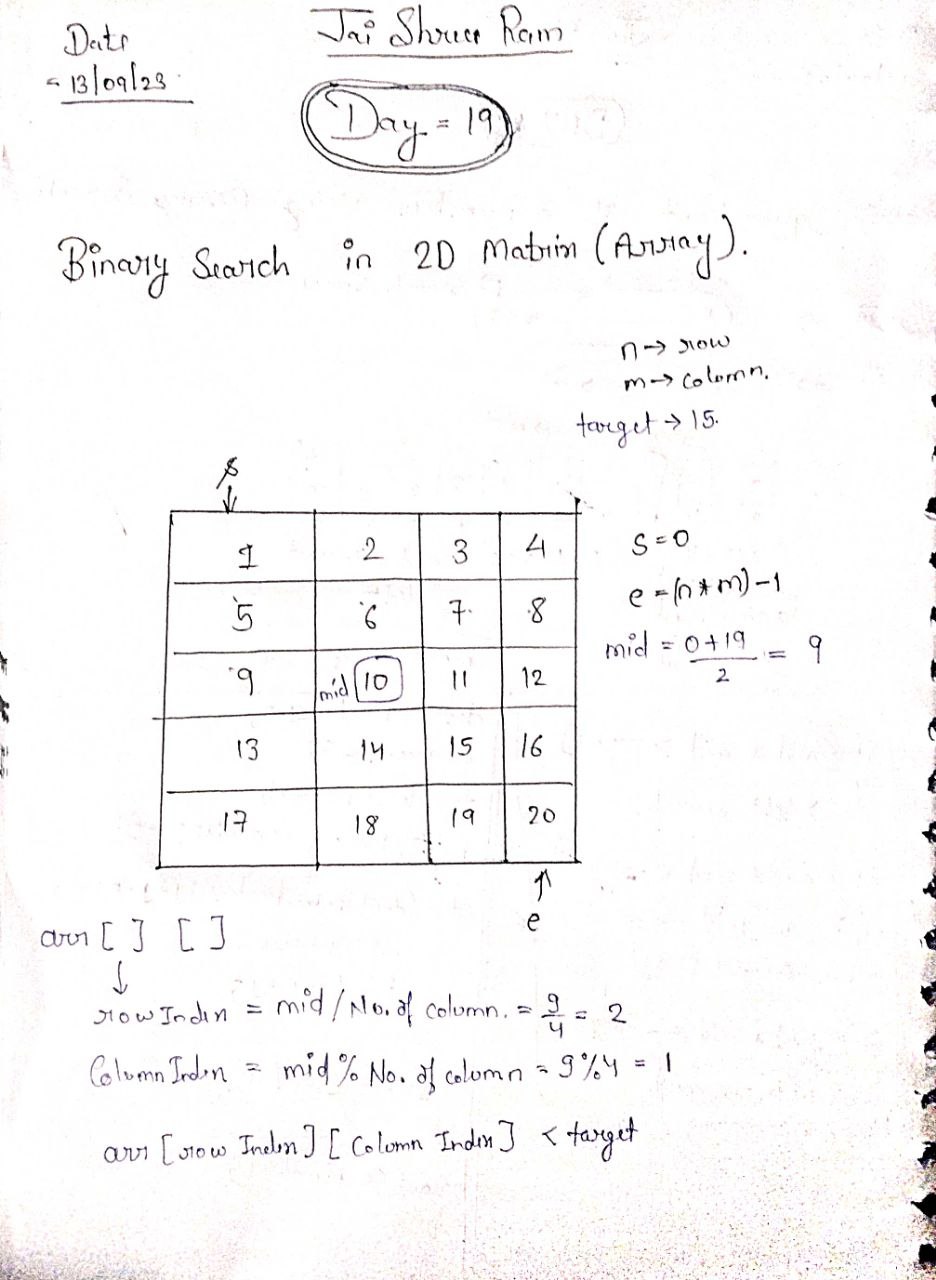 Date
= 13/09/23
Jai Shree Ram
Day = 19
Binary Search in 2D Matrix (Array).
n → row
m → Colomn.
target → 15.
s
1 2 3 4
5 6 7 8
9 mid 10 11 12
13 14 15 16
17 18 19 20
e
S = 0
e = (n * m) - 1
mid = 0 + 19 / 2 = 9
arr [ ] [ ]
row Index = mid / No. of column. = 9/4 = 2
Colomn Index = mid % No. of colomn = 9 % 4 = 1
arr [row Index] [Colomn Index] < target